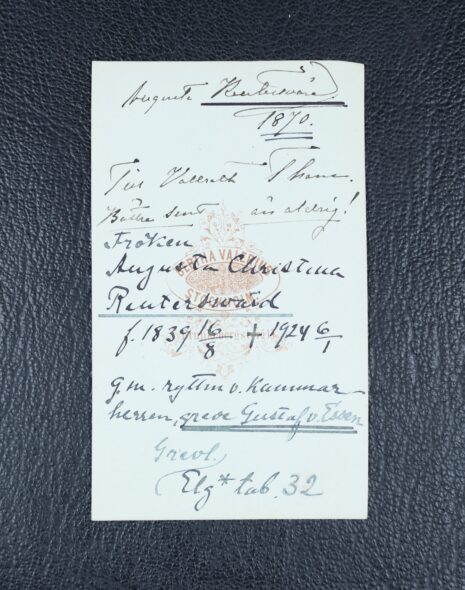 Augusta Reuterswärd
1870.
Till Vallrath Tham.
Bättre sent än aldrig!
Fröken
Augusta Christina
Reuterswärd
f. 1839 16/8 † 1924 6/1
g.m. ryttm. v. Kammar
herren, greve Gustaf v. Essen
Grevl.
Elg* tab. 32
BERTHA VALERIUS